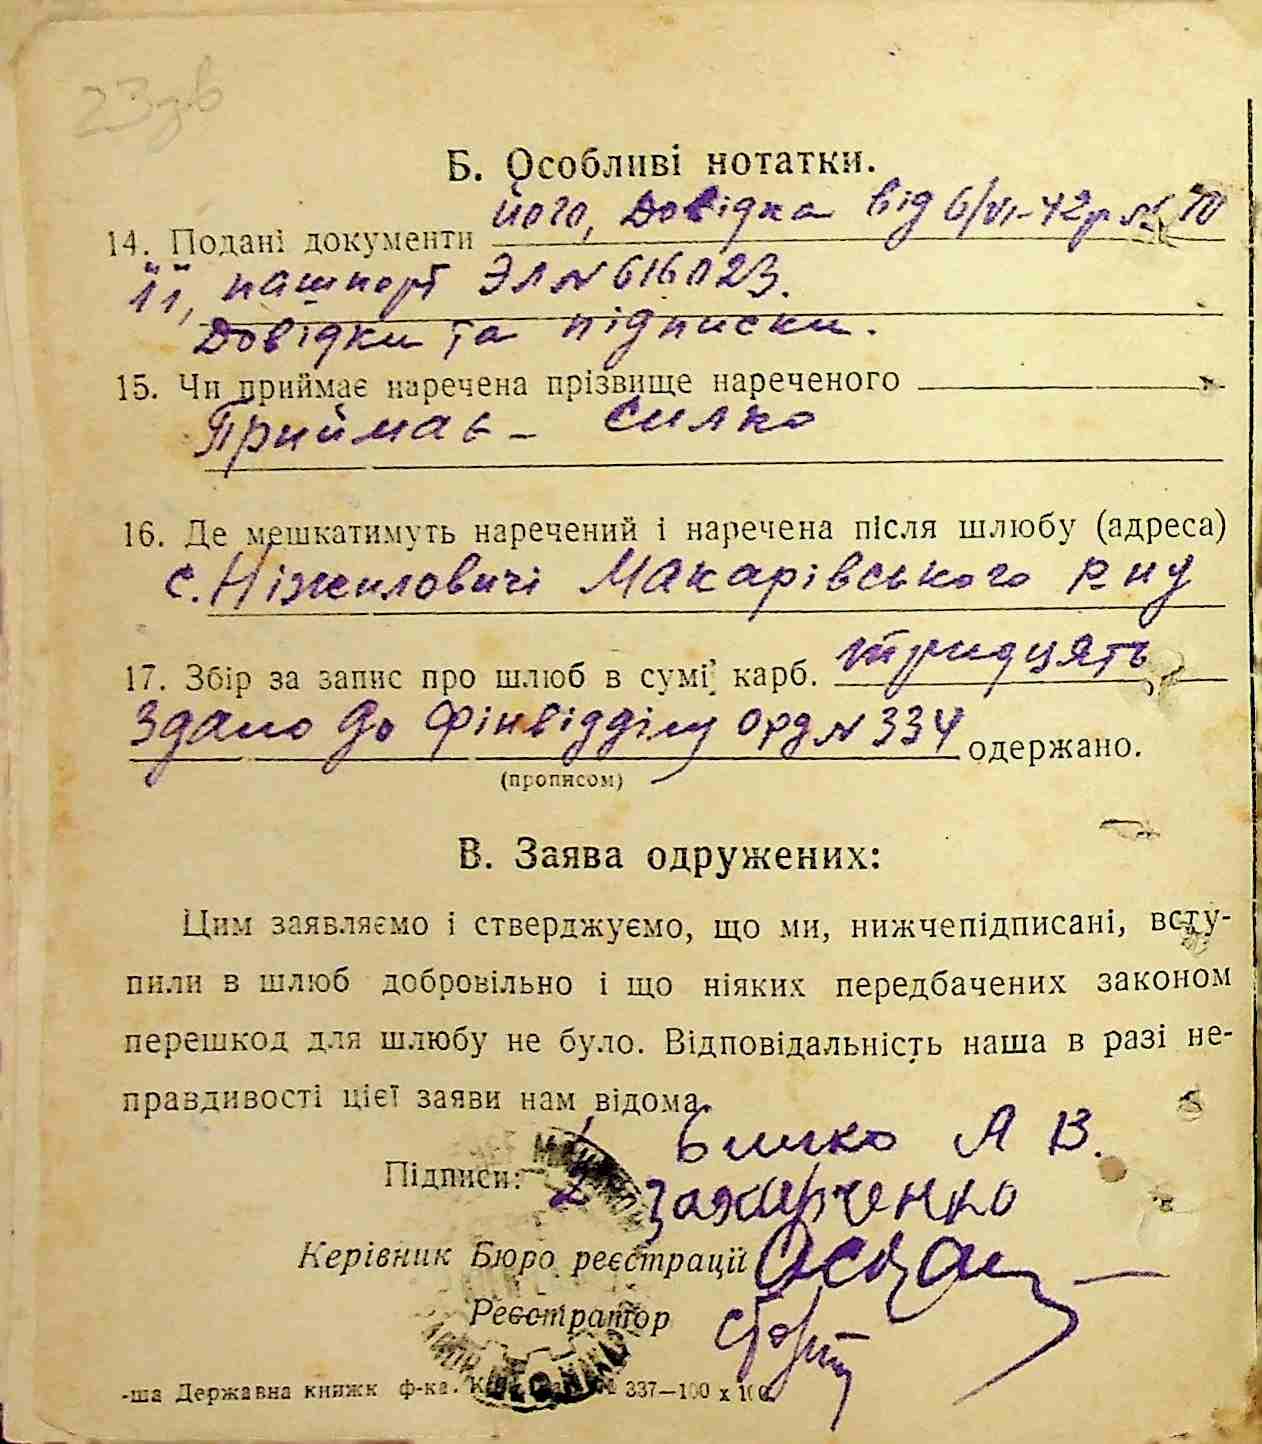 23зв
Б. Особливі нотатки.
14. Подані документи його, Довідка від 6/VI-42р № 70
її, пашпорт ЭЛ № 616023.
Довідки та підписки.
15. Чи приймає наречена прізвище нареченого
Приймає – Силко
16. Де мешкатимуть наречений і наречена після шлюбу (адреса)
с. Ніжиловичі Макарівського р-ну
17. Збір за запис про шлюб в сумі карб. тридцять
Здано до Фінвідділу орд № 334 одержано.
(прописом)
В. Заява одружених:
Цим заявляємо і стверджуємо, що ми, нижчепідписані, всту-
пили в шлюб добровільно і що ніяких передбачених законом
перешкод для шлюбу не було. Відповідальність наша в разі не-
правдивості цієї заяви нам відома.
1 Силко А В.
Підписи: 2 Захарченко
Керівник Бюро реєстрації
Реєстратор
-ша Державна книжк ф-ка. 337—100 х 100